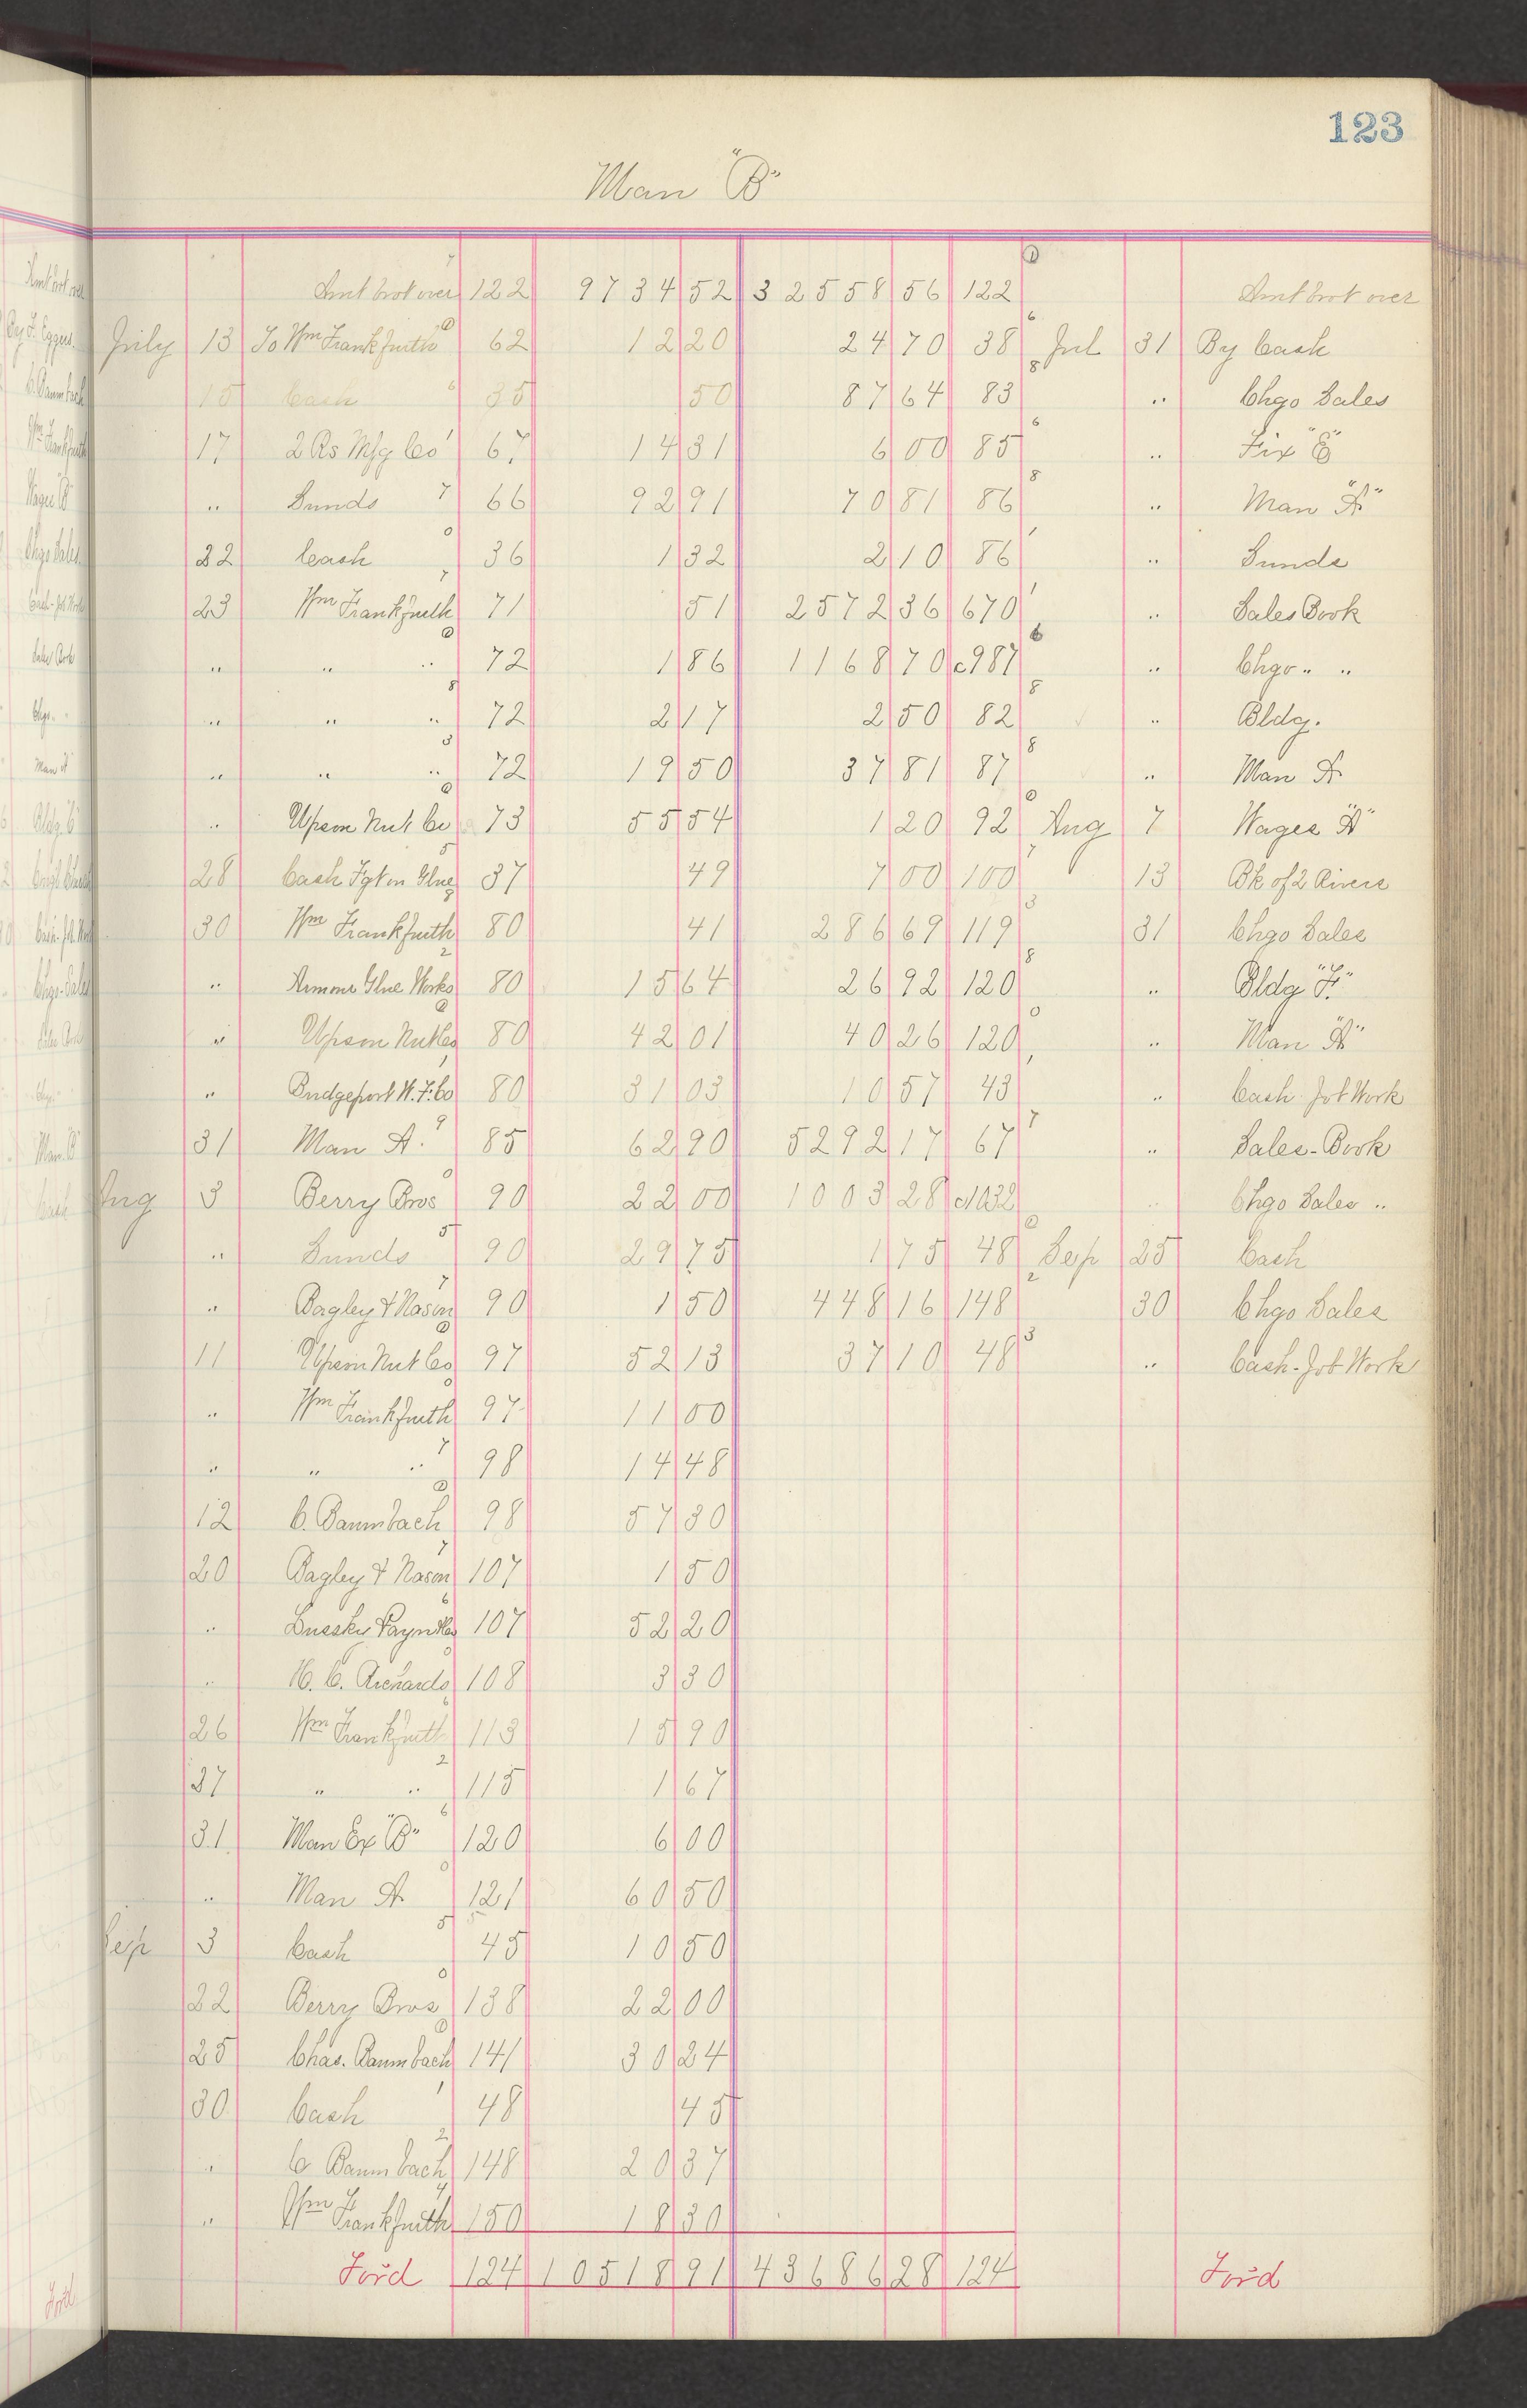 123
Man "B"
Amt brot over 122 9734 52 32558 56 122 Amt brot over
July 13 To Wm Frankfurth 62 12 20 24 70 38 Jul 31 By Cash
15 Cash 35 50 87 64 83 " Chgo Sales
17 2 Rs Mfg Co 67 14 31 6 00 85 " Fix "E"
" Sunds 66 92 91 70 81 86 " Man "A"
22 Cash 36 1 32 2 10 86 " Sunds
23 Wm Frankfurth 71 51 2572 36 670 " Sales Book
" " " 72 1 86 1168 70 c987 " Chgo " "
" " " 72 2 17 2 50 82 " Bldg.
" " " 72 19 50 37 81 87 " Man A
" Upson Nut Co 73 55 54 1 20 92 Aug 7 Wages "A"
28 Cash Fgt on Glue 37 49 7 00 100 13 Bk of 2 Rivers
30 Wm Frankfurth 80 41 286 69 119 31 Chgo Sales
" Armour Glue Works 80 15 64 26 92 120 " Bldg "F"
" Upson Nut Co 80 42 01 40 26 120 " Man "A"
" Bridgeport W. F. Co 80 31 03 10 57 43 " Cash Job Work
31 Man A. 85 62 90 5292 17 67 " Sales-Book
Aug 3 Berry Bros 90 22 00 1003 28 c1032 " Chgo Sales "
" Sunds 90 29 75 1 75 48 Sep 25 Cash
" Bagley & Nason 90 1 50 448 16 148 30 Chgo Sales
11 Upson Nut Co 97 52 13 37 10 48 " Cash-Job Work
" Wm Frankfurth 97 11 00
" " " 98 14 48
12 C. Baumbach 98 57 30
20 Bagley & Nason 107 1 50
" 107 52 20
" H. C. Richards 108 3 30
26 Wm Frankfurth 113 15 90
27 " " 115 1 67
31 Man Ex "B" 120 6 00
" Man A 121 60 50
Sep 3 Cash 45 10 50
22 Berry Bros 138 22 00
25 Chas. Baumbach 141 30 24
30 Cash 48 45
" C Baumbach 148 20 37
" Wm Frankfurth 150 18 30
For'd 124 10518 91 43686 28 124 For'd